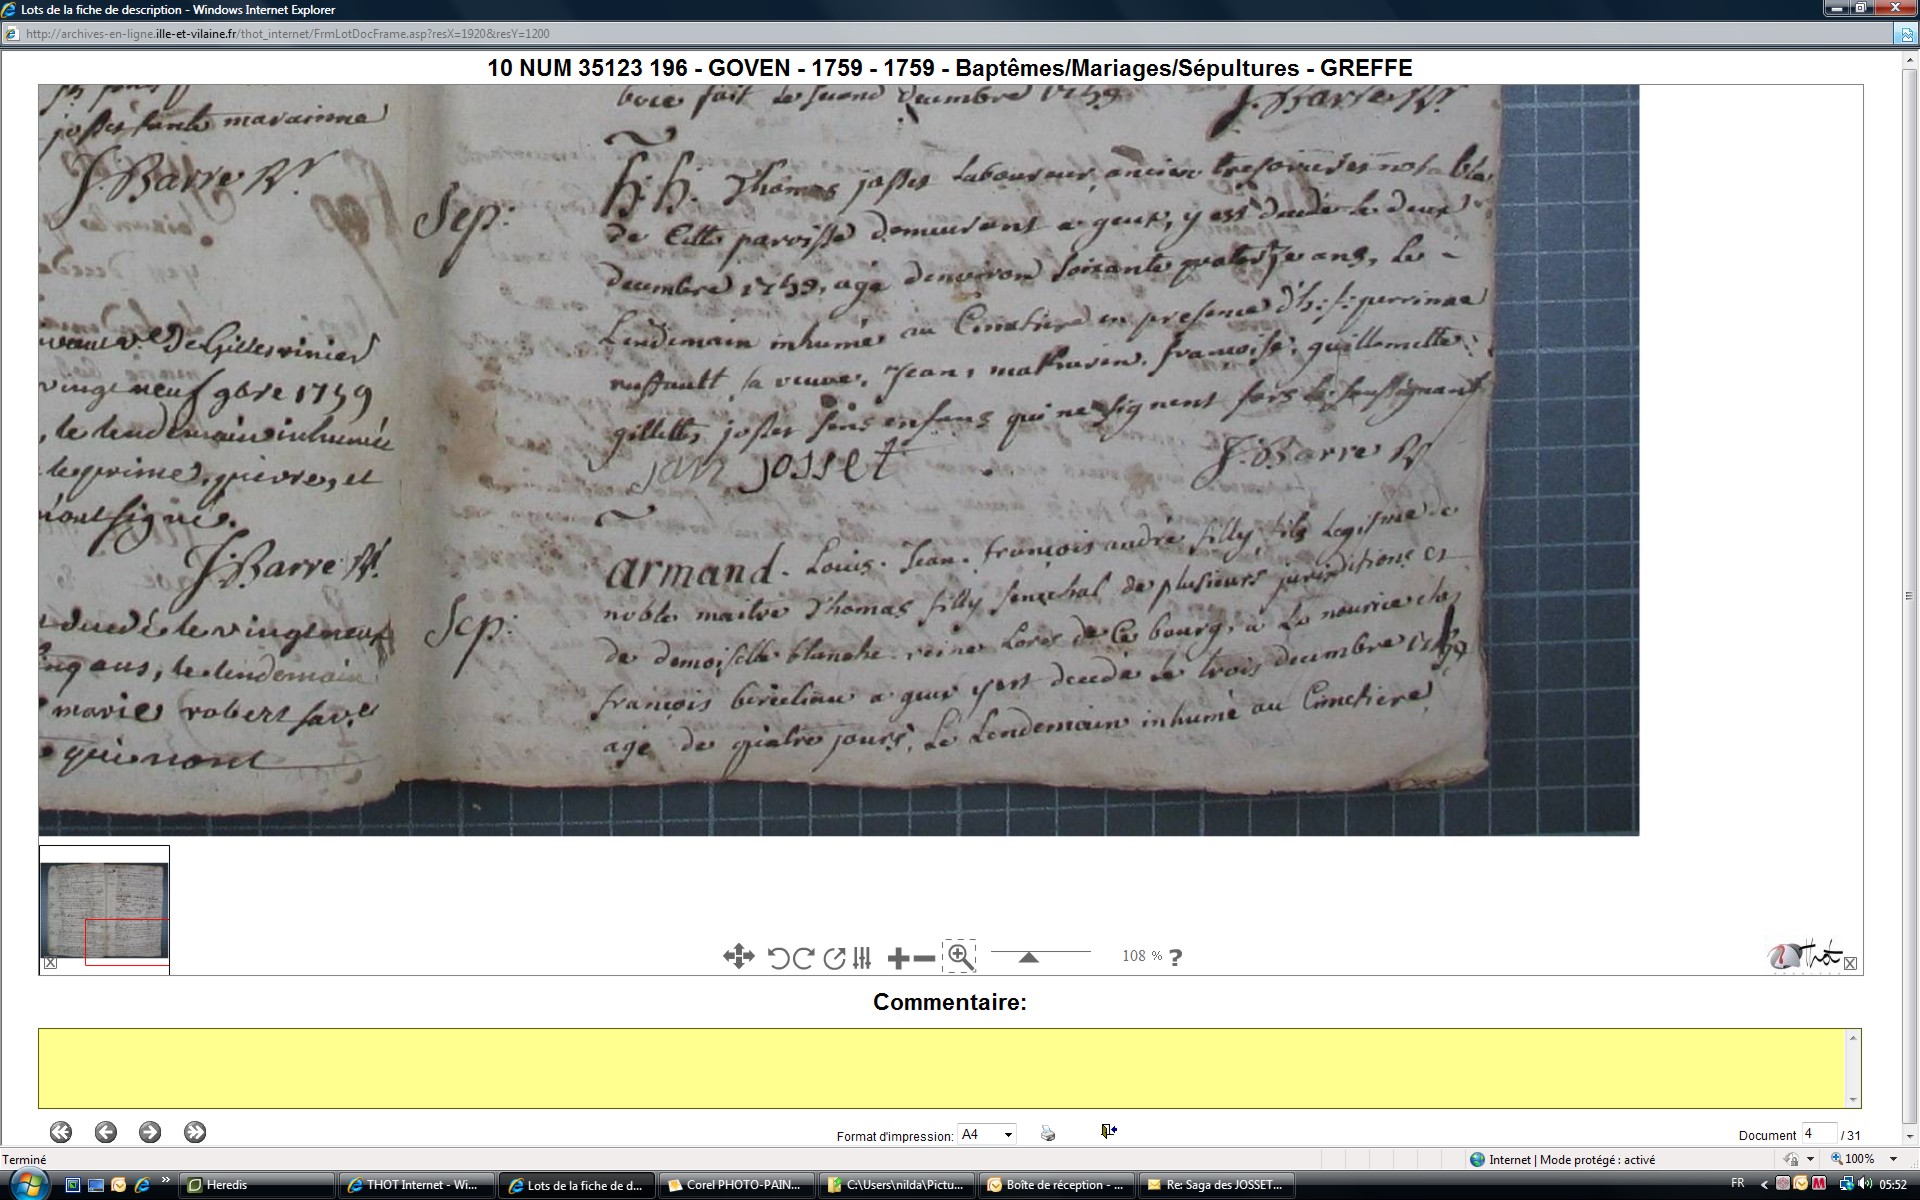 Lots de la fiche de description - Windows Internet Explorer
http://archives-en-ligne.ille-et-vilaine.fr/thot_internet/FrmLotDocFrame.asp?resX=1920&resY=1200
10 NUM 35123 196 - GOVEN - 1759 - 1759 - Baptêmes/Mariages/Sépultures - GREFFE
josset fante marainne
J. Barre Rr.
de Gilles vinier
vingt neuf 9bre 1759
, le lendemain inhumée
le prime, pierre, et
n'ont signé.
J. Barre Rr.
decedé le vingt neuf
cinq ans, le lendemain
marie robert sa ve
qui n'ont
fait le second decembre 1759
J. Barre Rr.
Sep:
h. h. Thomas josset laboureur, ancien tresorier et notable
de cette paroisse demeurant a geux, y est decedé le deux
decembre 1759, agé d'environ soixante quatorze ans, le
Lendemain inhumé au Cimetiere en presence d'h: f: perrinne
ruffault sa veuve, Jean, mathurin, francoise, guillemette
gillette, josset ses enfans qui ne signent fors le soussignant
jan josset
J. Barre Rr
Sep:
armand. Louis. Jean. françois andré filly, fils Legitime de
noble maitre Thomas filly senechal de plusieurs juriditions et
de demoiselle blanche reine Lorée de Ce bourg, a la nourice chez
françois a geux y est decedé le trois decembre 1759
agé de quatre jours, Le Lendemain inhumé au Cimetiere
108 % ?
Thot
Commentaire:
Format d'impression: A4
Document 4 / 31
Terminé
Internet | Mode protégé : activé
100%
Heredis
THOT Internet - Wi...
Lots de la fiche de d...
Corel PHOTO-PAIN...
C:\Users\nilda\Pictu...
Boîte de réception - ...
Re: Saga des JOSSET...
FR
05:52